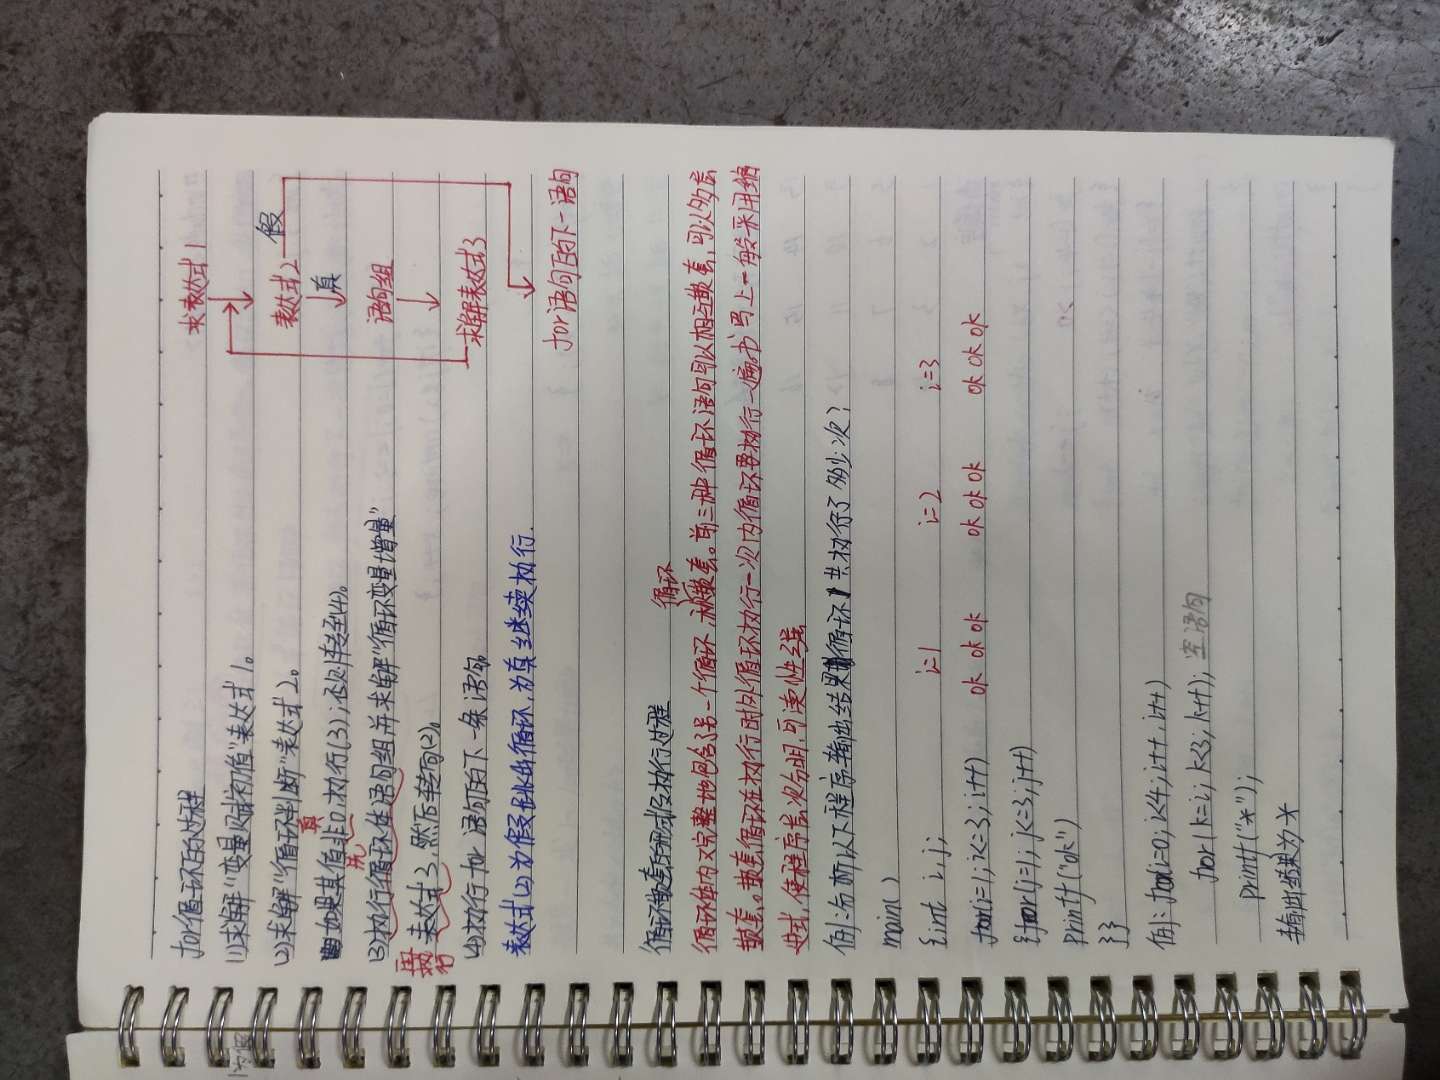 for循环的过程
(1)求解"变量赋初值"表达式1。
(2)求解"循环判断"表达式2。
如果其值非0,执行(3),否则转至(4)。
真
先
(3)执行循环体语句组并求解"循环变量增量"
表达式3,然后转向(2)。
再执行
(4)执行for语句的下一条语句。
表达式(2)为假跳出循环,为真继续执行.
求表达式1
表达式2
假
真
语句组
求解表达式3
for语句的下一语句
循环嵌套的形式及执行过程
循环
循环体内又完整地包含另一个循环 嵌套。前三种循环语句可以相互嵌套,可以多层
嵌套。嵌套循环在执行时外循环执行一次内循环要执行一遍。书写上一般采用缩
进式,使程序层次分明,可读性强
例:分析以下程序输出结果,循环共执行了多少次?
main()
{int i,j;
for(i=1;i<=3;i++)
{for(j=1;j<=3;j++)
printf("ok")
}}
i=1 i=2 i=3
ok ok ok ok ok ok ok ok ok
例:for(i=0;i<4;i++,i++)
for(k=i;k<3;k++); 空语句
printf("*");
输出结果为*